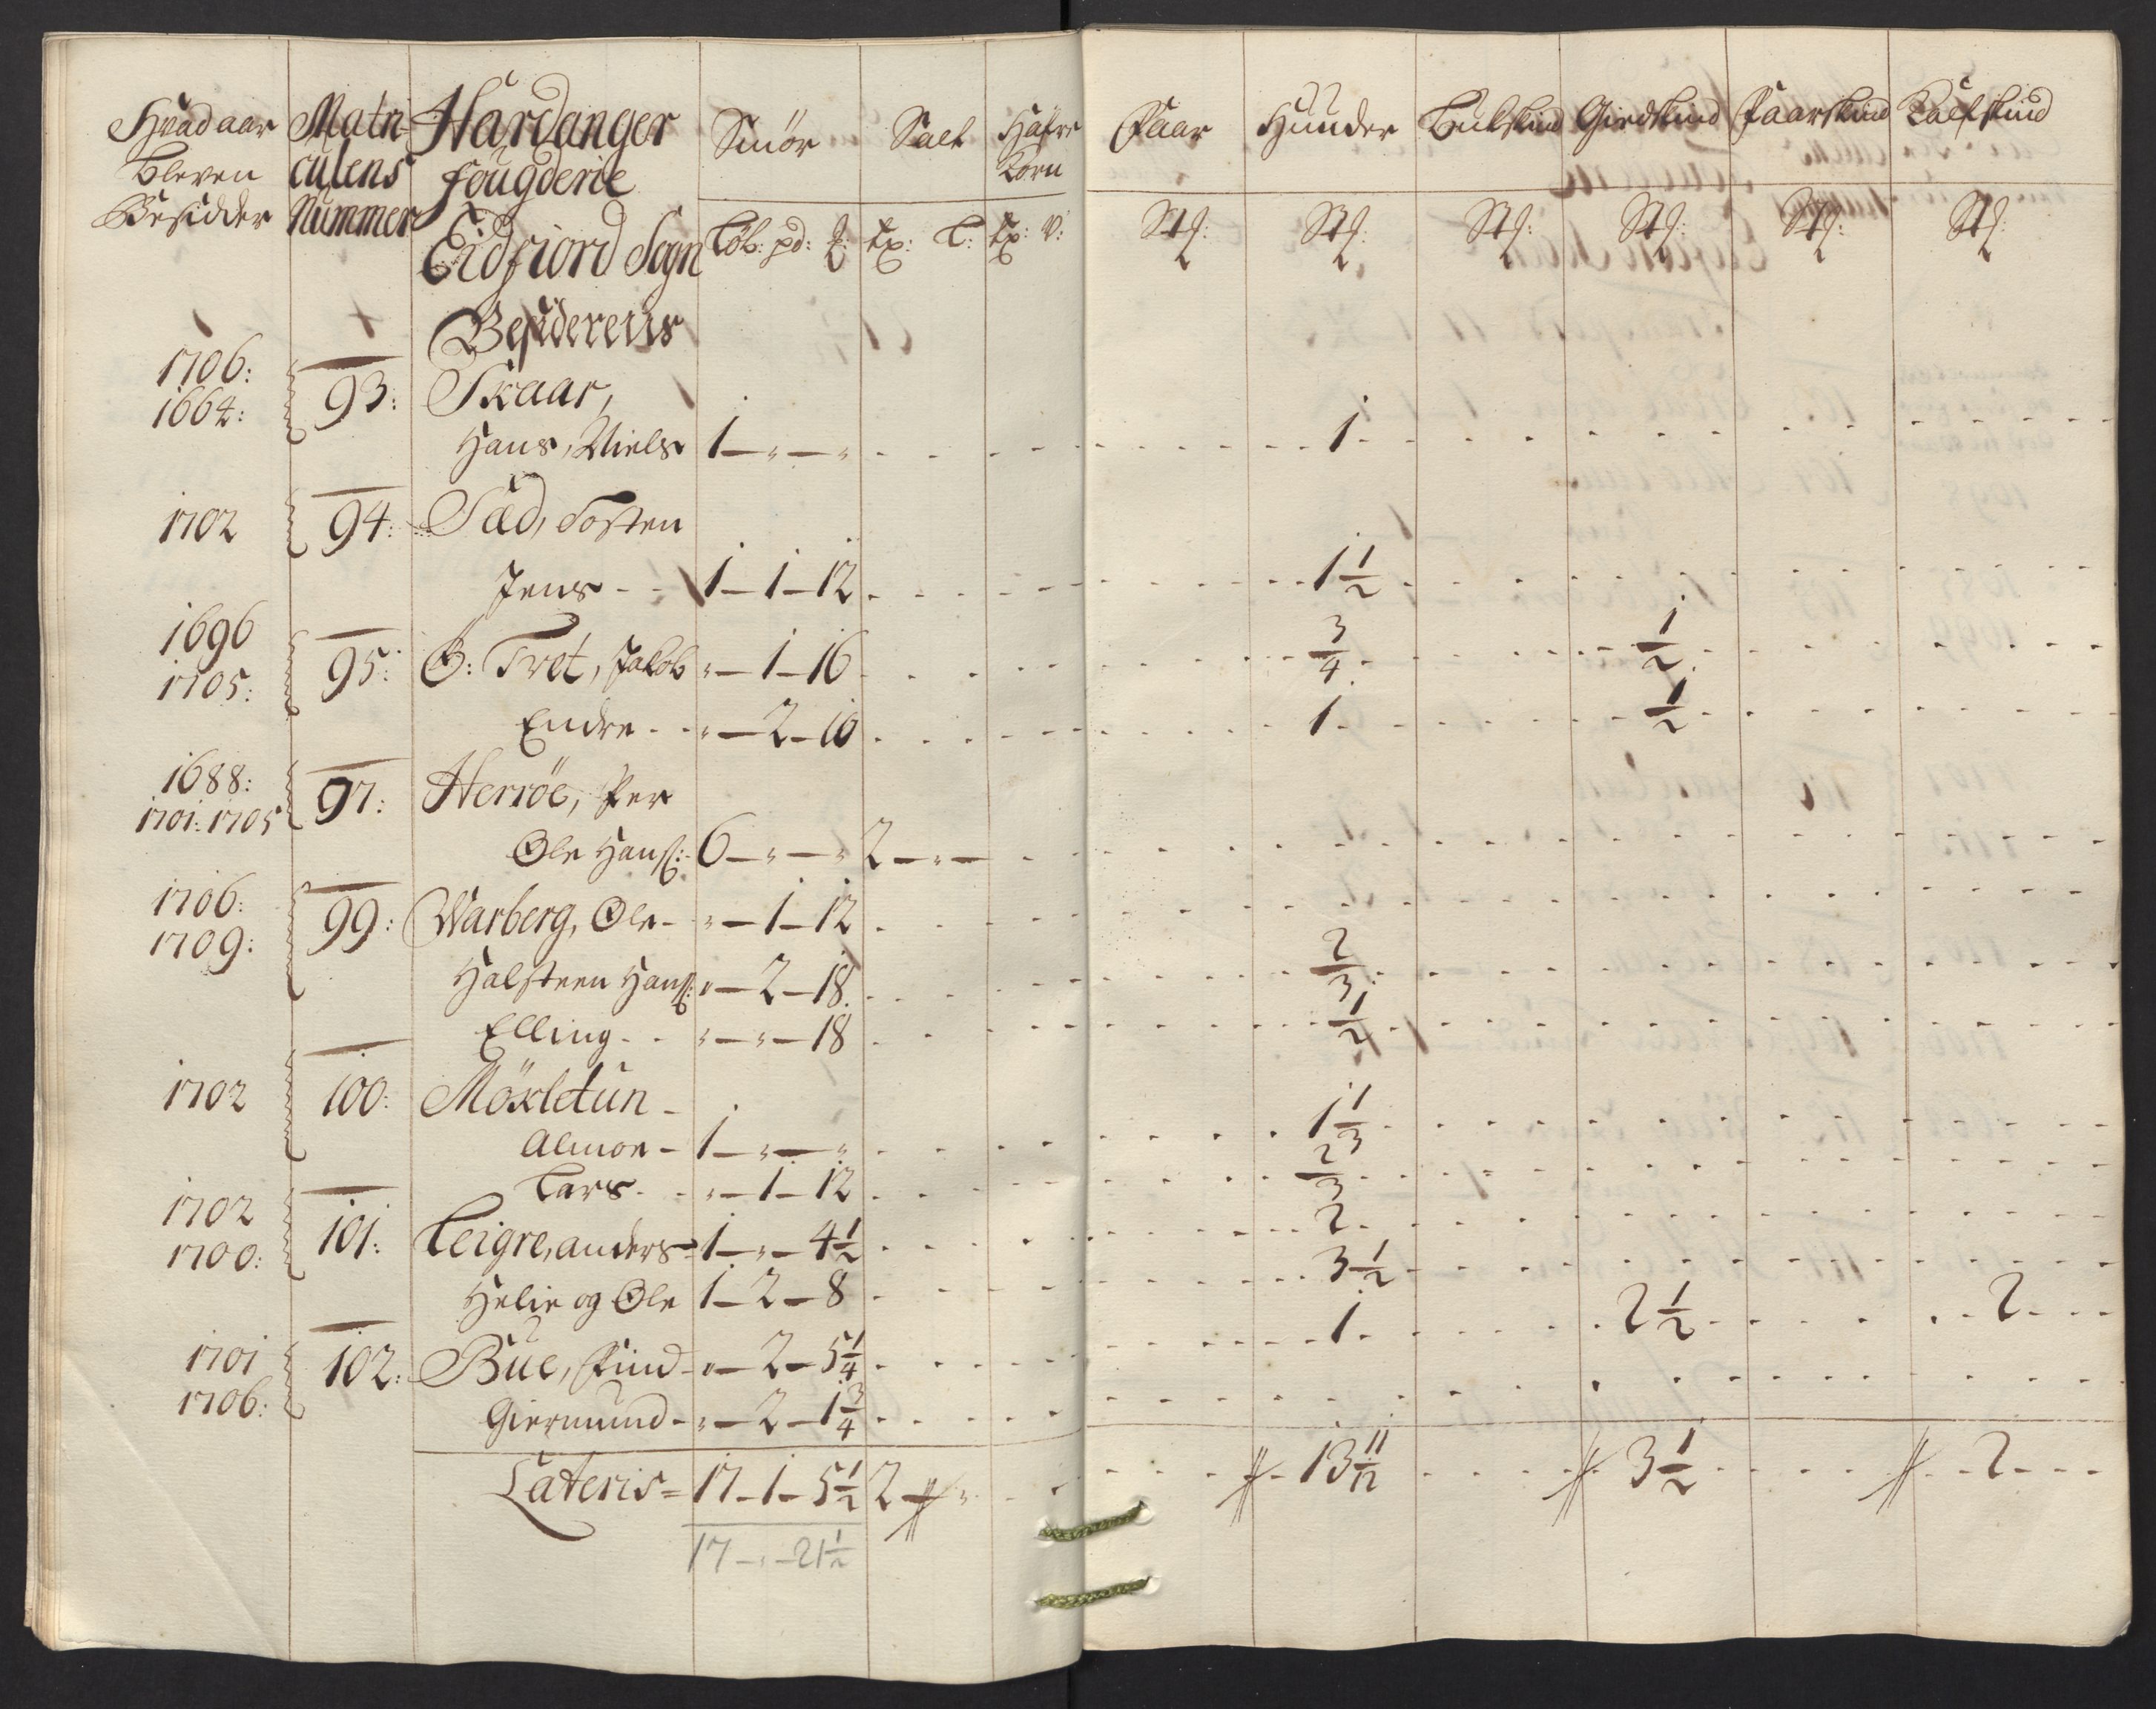 Hvad aar Bleven Besidder | Matriculens Nummer | Hardanger fougderie Eidfiord Sogn Besidderens | Smör | Salt | Hafre Korn | Faar | Huuder | Bukskind | Giedskind | Faarskind | Kalfskind
Löb: pd: | tp: | tp: v: | St: | St: | St: | St: | St: | St:
1706: 1664: 93: Skaar,
Hans, Niels 1 - " - " 1
1702 94: Sæd, Tosten
Jens - - 1 - 1 - 12 1 1/2
1696 1705: 95: Ö: Tvet, Jakob " - 1 - 16 3/4 1/2
Endre - - " - 2 - 16 1 1/2
1688: 1701: 1705 97: Herröe, Per
Ole Hans: 6 - " - " 2 - " -
1706: 1709: 99: Warberg, Ole - " - 1 - 12
Halsteen Hans: " - 2 - 18 2/3
Elling - - " - " - 18 1/2
1702 100: Möxletun -
Almoe - 1 - " - " 1 1/3
Lars - - " - 1 - 12 2/3
1702 1700: 101: Leigre, anders - 1 - " - 4 1/2 2
Helie og Ole 1 - 2 - 8 3 1/2
1701 1706: 102: Bue, Find - " - 2 - 5 1/4 1 2 1/2 2
Giermund - " - 2 - 1 3/4
Lateris = 17 - 1 - 5 1/2 2 - " 13 11/12 3 1/2 2
17 - " - 21 1/2